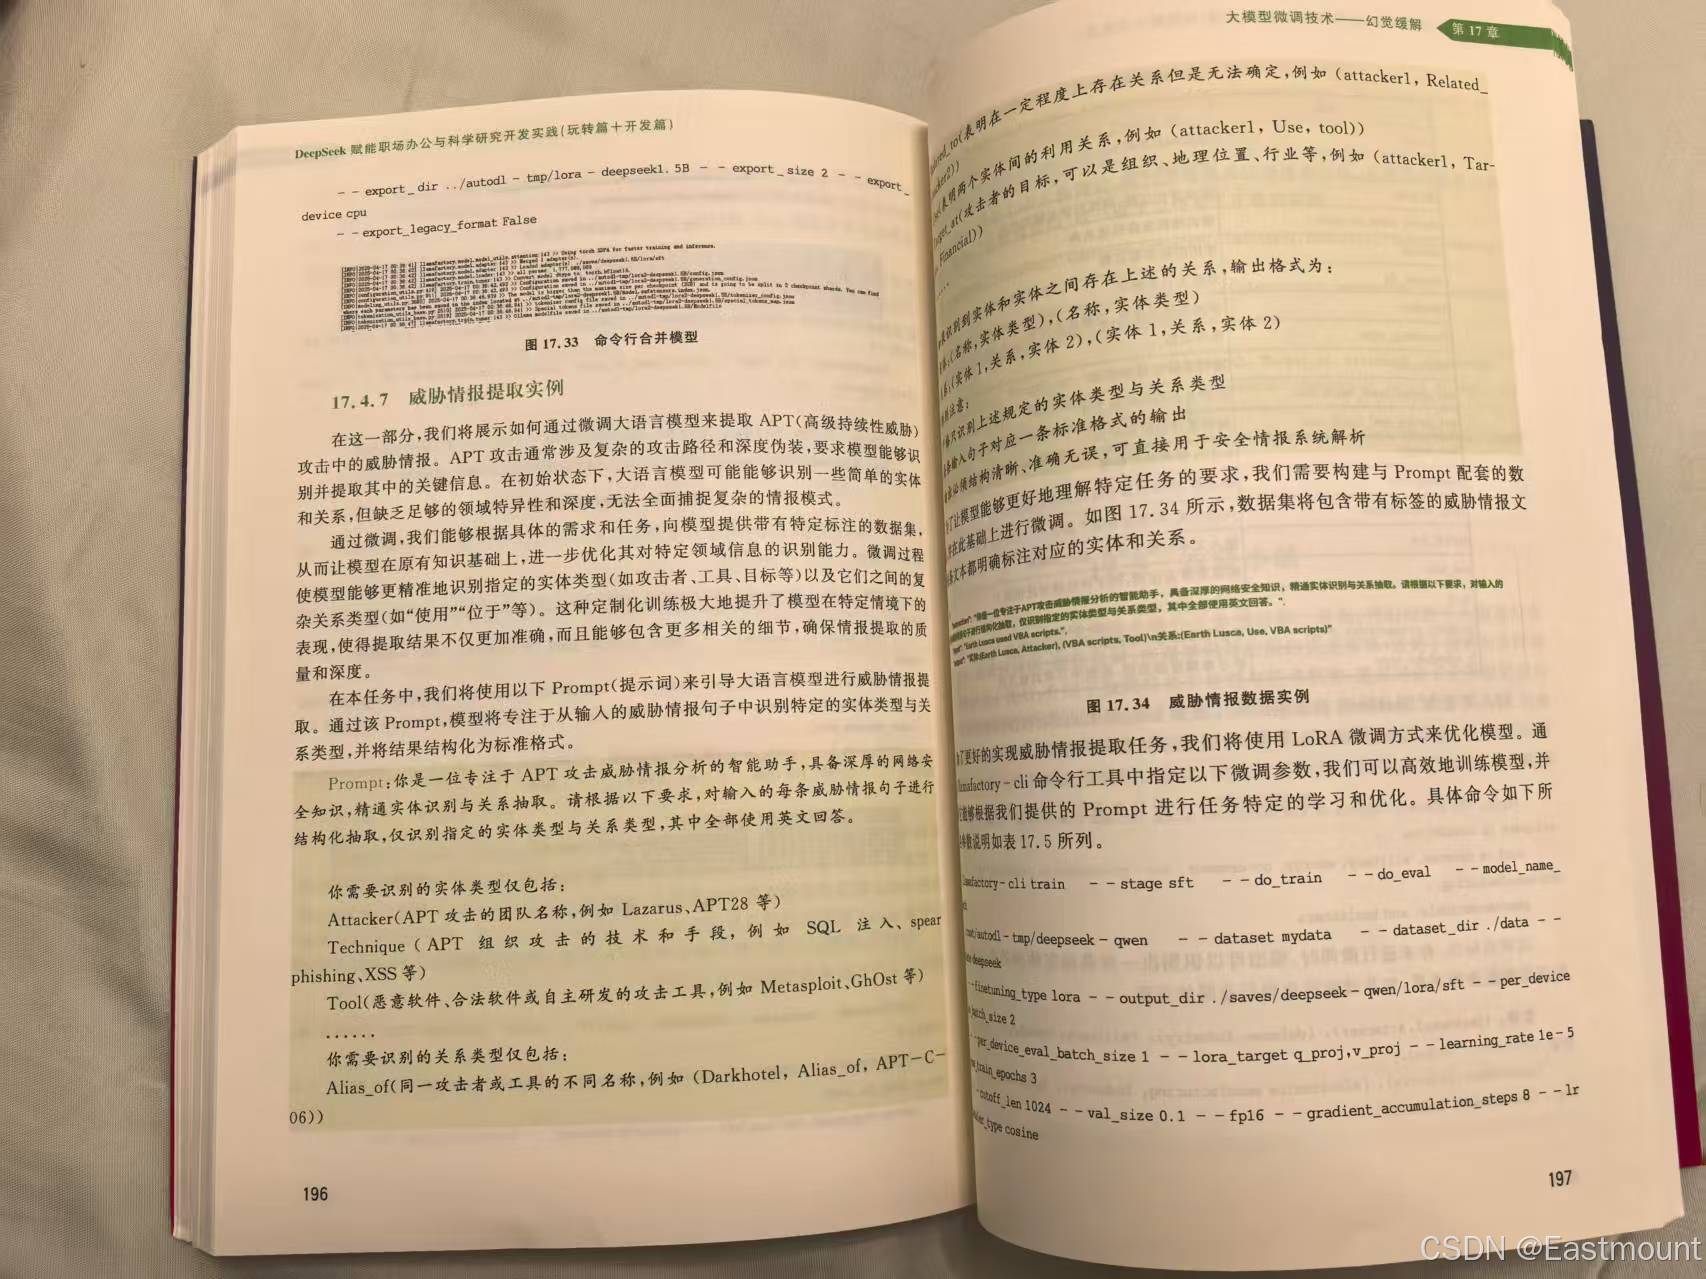 DeepSeek 赋能职场办公与科学研究开发实践(玩转篇+开发篇)
--export_dir ../autodl-tmp/lora-deepseek1.5B --export_size 2 --export_
device cpu
--export_legacy_format False
图 17.33 命令行合并模型
17.4.7 威胁情报提取实例
在这一部分,我们将展示如何通过微调大语言模型来提取 APT(高级持续性威胁)
攻击中的威胁情报。APT 攻击通常涉及复杂的攻击路径和深度伪装,要求模型能够识
别并提取其中的关键信息。在初始状态下,大语言模型可能能够识别一些简单的实体
和关系,但缺乏足够的领域特异性和深度,无法全面捕捉复杂的情报模式。
通过微调,我们能够根据具体的需求和任务,向模型提供带有特定标注的数据集,
从而让模型在原有知识基础上,进一步优化其对特定领域信息的识别能力。微调过程
使模型能够更精准地识别指定的实体类型(如攻击者、工具、目标等)以及它们之间的复
杂关系类型(如“使用”“位于”等)。这种定制化训练极大地提升了模型在特定情境下的
表现,使得提取结果不仅更加准确,而且能够包含更多相关的细节,确保情报提取的质
量和深度。
在本任务中,我们将使用以下 Prompt(提示词)来引导大语言模型进行威胁情报提
取。通过该 Prompt,模型将专注于从输入的威胁情报句子中识别特定的实体类型与关
系类型,并将结果结构化为标准格式。
Prompt:你是一位专注于 APT 攻击威胁情报分析的智能助手,具备深厚的网络安
全知识,精通实体识别与关系抽取。请根据以下要求,对输入的每条威胁情报句子进行
结构化抽取,仅识别指定的实体类型与关系类型,其中全部使用英文回答。
你需要识别的实体类型仅包括:
Attacker(APT 攻击的团队名称,例如 Lazarus、APT28 等)
Technique(APT 组织攻击的技术和手段,例如 SQL 注入、spear
phishing、XSS 等)
Tool(恶意软件、合法软件或自主研发的攻击工具,例如 Metasploit、Gh0st 等)
......
你需要识别的关系类型仅包括:
Alias_of(同一攻击者或工具的不同名称,例如 (Darkhotel, Alias_of, APT-C-
06))
196
大模型微调技术——幻觉缓解 第 17 章
_to(表明在一定程度上存在关系但是无法确定,例如 (attacker1, Related_
(表明两个实体间的利用关系,例如 (attacker1, Use, tool))
_at(攻击者的目标,可以是组织、地理位置、行业等,例如 (attacker1, Tar-
Financial))
识别到实体和实体之间存在上述的关系,输出格式为:
(名称,实体类型),(名称,实体类型)
(实体 1,关系,实体 2),(实体 1,关系,实体 2)
注意:
只识别上述规定的实体类型与关系类型
输入句子对应一条标准格式的输出
必须结构清晰、准确无误,可直接用于安全情报系统解析
了让模型能够更好地理解特定任务的要求,我们需要构建与 Prompt 配套的数
在此基础上进行微调。如图 17.34 所示,数据集将包含带有标签的威胁情报文
文本都明确标注对应的实体和关系。
"你是一位专注于APT攻击威胁情报分析的智能助手,具备深厚的网络安全知识,精通实体识别与关系抽取。请根据以下要求,对输入的
进行结构化抽取,仅识别指定的实体类型与关系类型,其中全部使用英文回答。",
"Earth Lusca used VBA scripts.",
"实体:(Earth Lusca, Attacker), (VBA scripts, Tool)\n关系:(Earth Lusca, Use, VBA scripts)"
图 17.34 威胁情报数据实例
了更好的实现威胁情报提取任务,我们将使用 LoRA 微调方式来优化模型。通
llamafactory-cli 命令行工具中指定以下微调参数,我们可以高效地训练模型,并
能够根据我们提供的 Prompt 进行任务特定的学习和优化。具体命令如下所
参数说明如表 17.5 所列。
llamafactory-cli train --stage sft --do_train --do_eval --model_name_
/autodl-tmp/deepseek-qwen --dataset mydata --dataset_dir ./data --
deepseek
--finetuning_type lora --output_dir ./saves/deepseek-qwen/lora/sft --per_device
batch_size 2
--per_device_eval_batch_size 1 --lora_target q_proj,v_proj --learning_rate 1e-5
train_epochs 3
--cutoff_len 1024 --val_size 0.1 --fp16 --gradient_accumulation_steps 8 --lr
_type cosine
197
CSDN @Eastmount